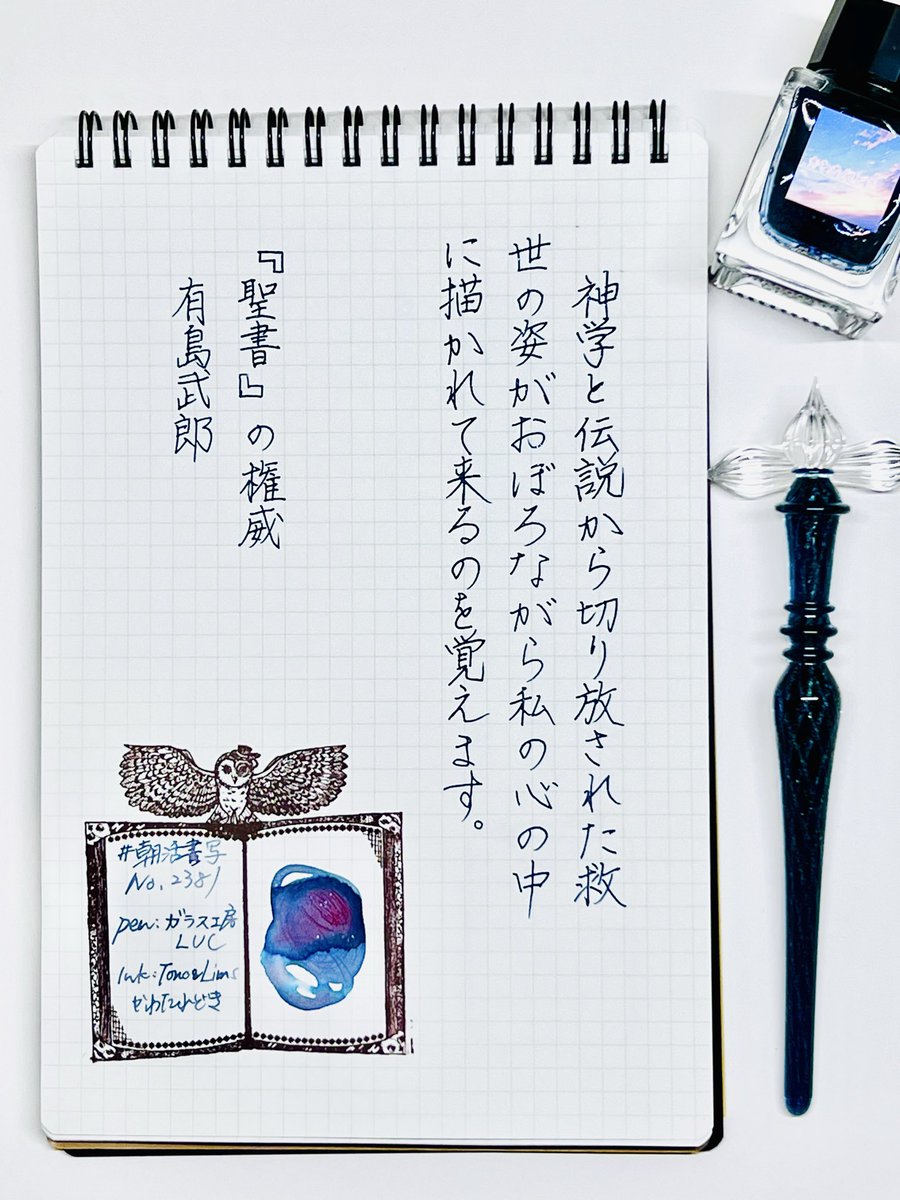 神学と伝説から切り放された救
世の姿がおぼろながら私の心の中
に描かれて来るのを覚えます。
『聖書』の権威
有島武郎
#朝活書写
No.2381
pen:ガラス工房
LUC
Ink:Tono&Lims
かわたれどき